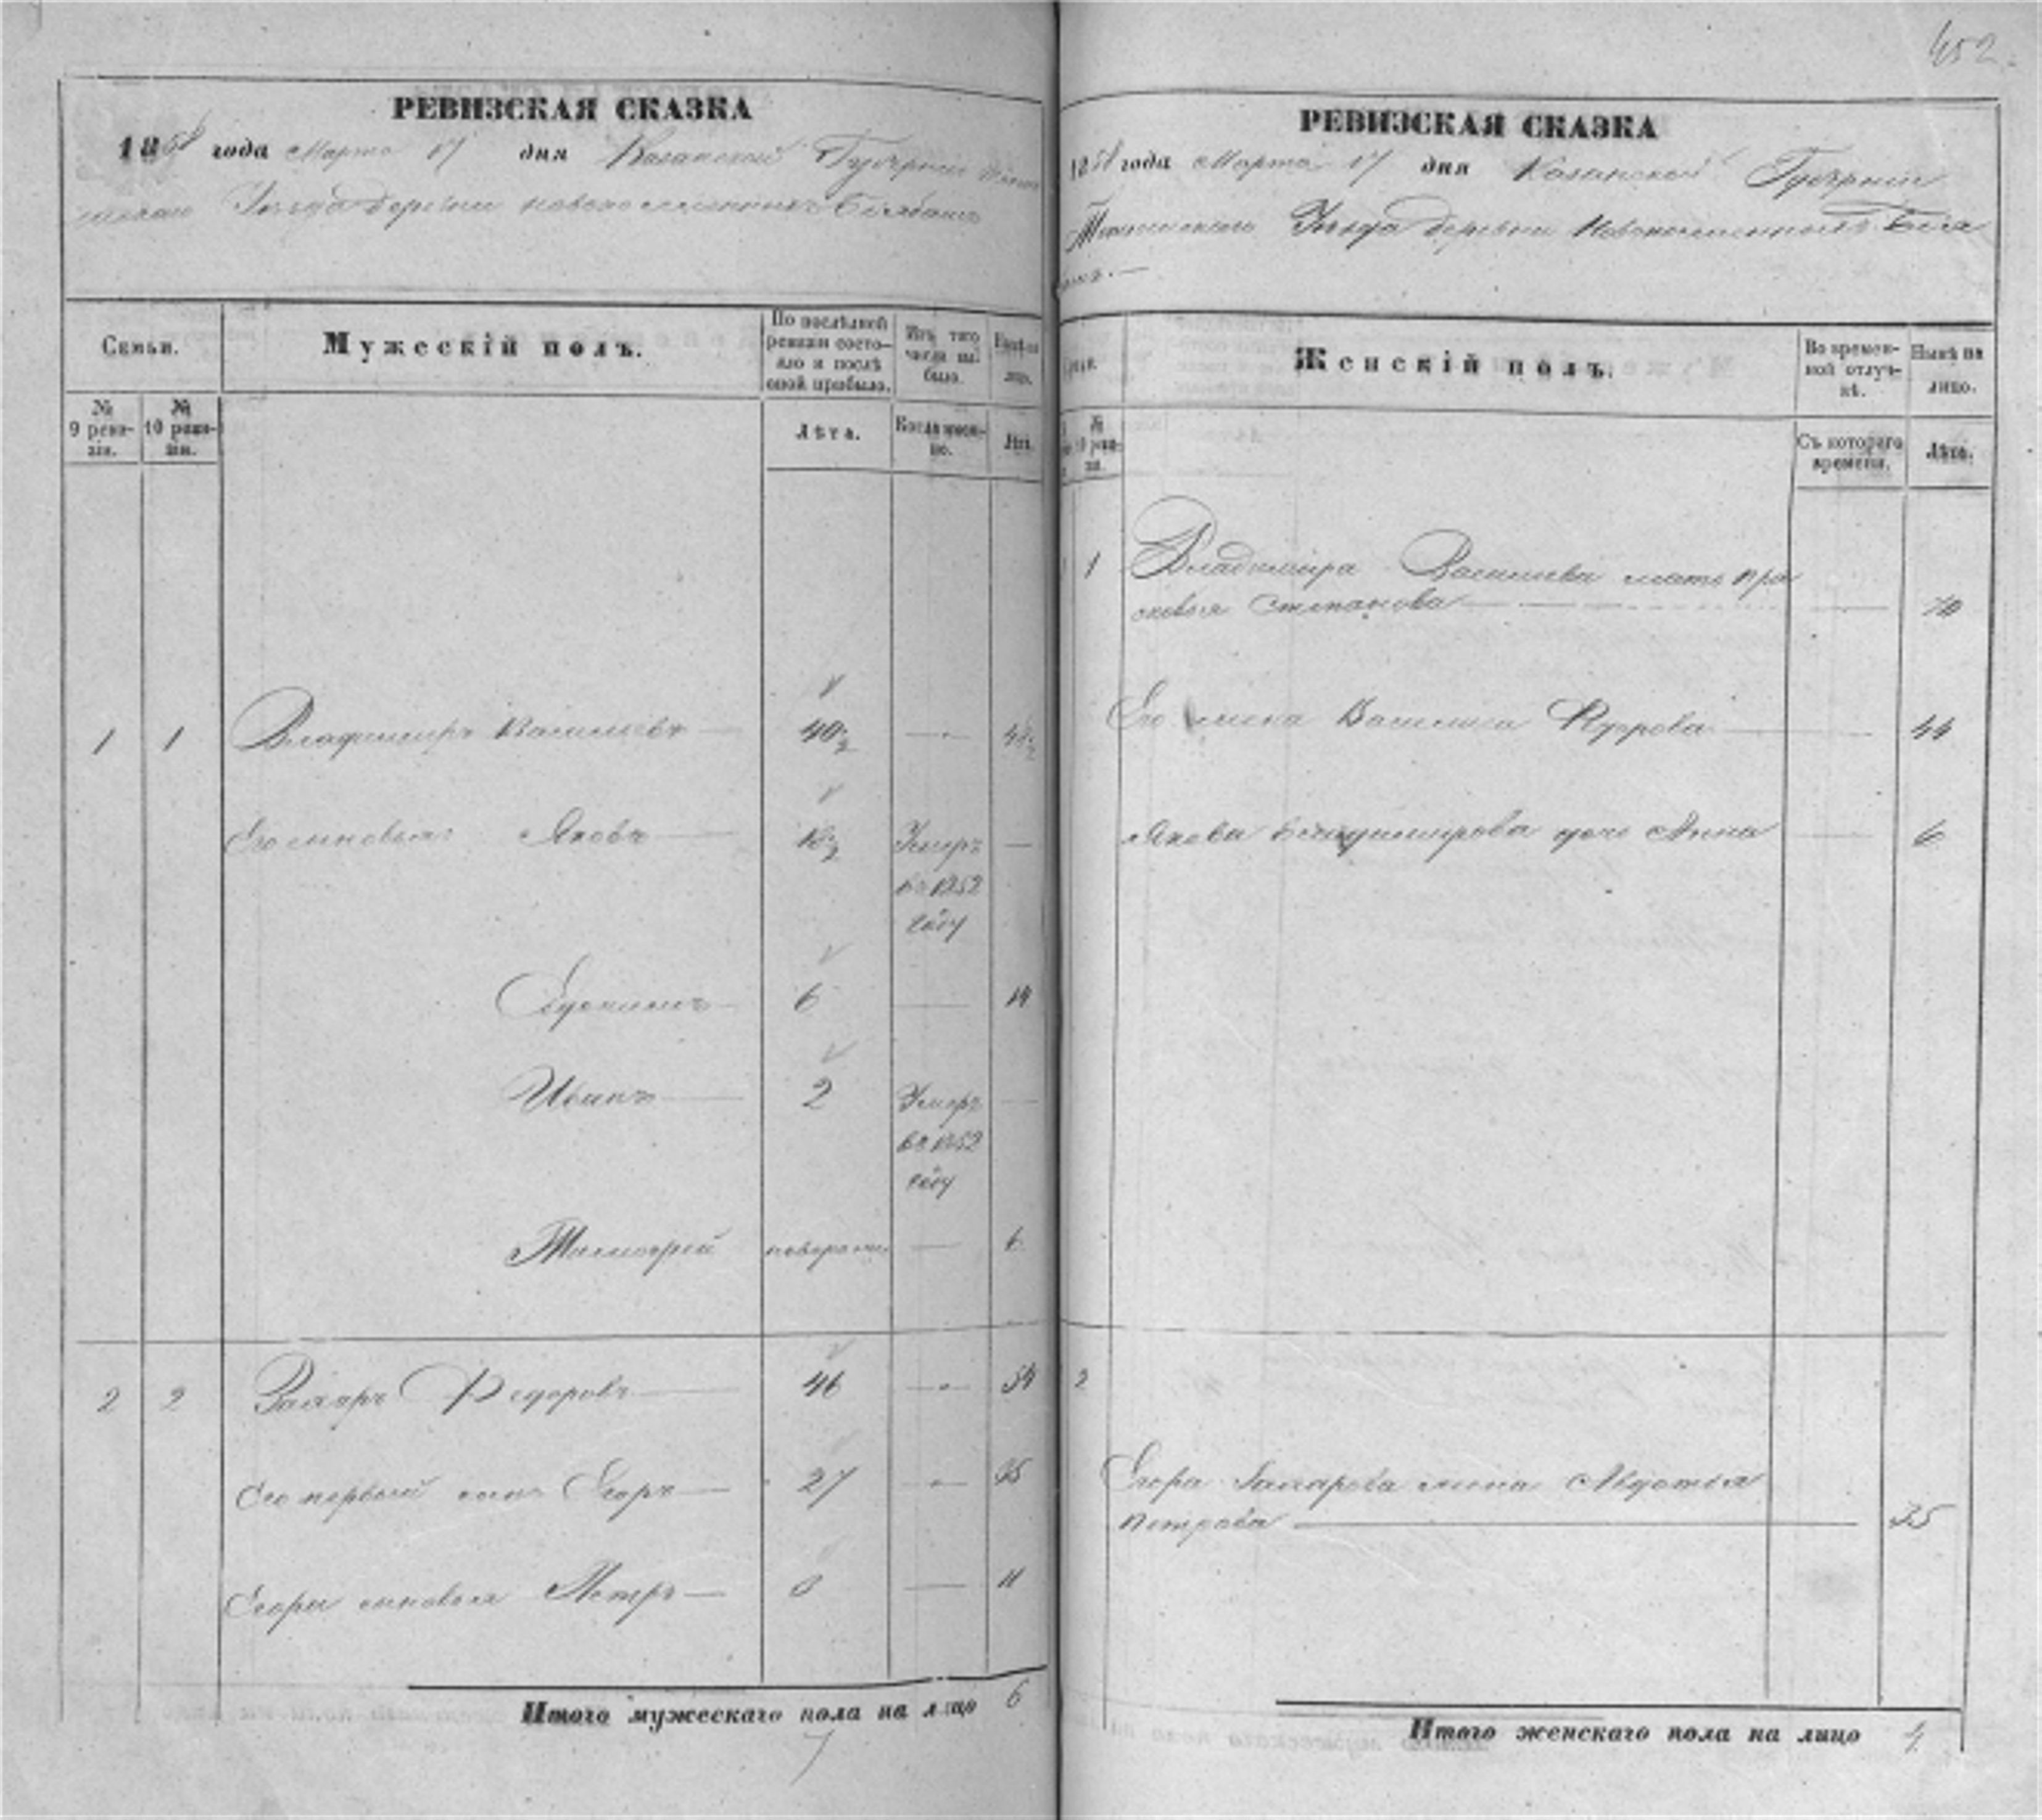 452.
РЕВИЗСКАЯ СКАЗКА
1858 года Марта 17 дня Казанской Губерніи
Уѣзда деревни новопоселенныхъ
Семьи.
Мужескій полъ.
По послѣдней ревизіи состояло и послѣ оной прибыло.
Изъ того числа выбыло.
Нынѣ на лицо.
№ 9 ревизіи.
№ 10 ревизіи.
Лѣта.
Когда именно.
Лѣта.
1 1 Владимиръ Васильевъ 40½ — 48½
Его сыновья: Яковъ 18½ Умеръ
въ 1852
году
6 — 14
Иванъ 2 Умеръ
въ 1852
году
Тимофей — 6
2 2 Захаръ Федоровъ 46 — 54
Его первый сынъ Егоръ 27 — 35
Егора сыновья Петръ — 11
Итого мужескаго пола на лицо 6
7
РЕВИЗСКАЯ СКАЗКА
1858 года Марта 17 дня Казанской Губерніи
Уѣзда деревни Новопоселенныхъ
Семьи.
Женскій полъ.
Во временной отлучкѣ.
Нынѣ на лицо.
№ 10 ревизіи.
Съ котораго времени.
Лѣта.
1 Владимира Васильева мать Пра
сковья Степанова — 70
Его жена Василиса Федорова — 44
Якова Владимирова дочь Анна — 6
2
Егора Захарова жена Авдотья
Петрова — 35
Итого женскаго пола на лицо 4